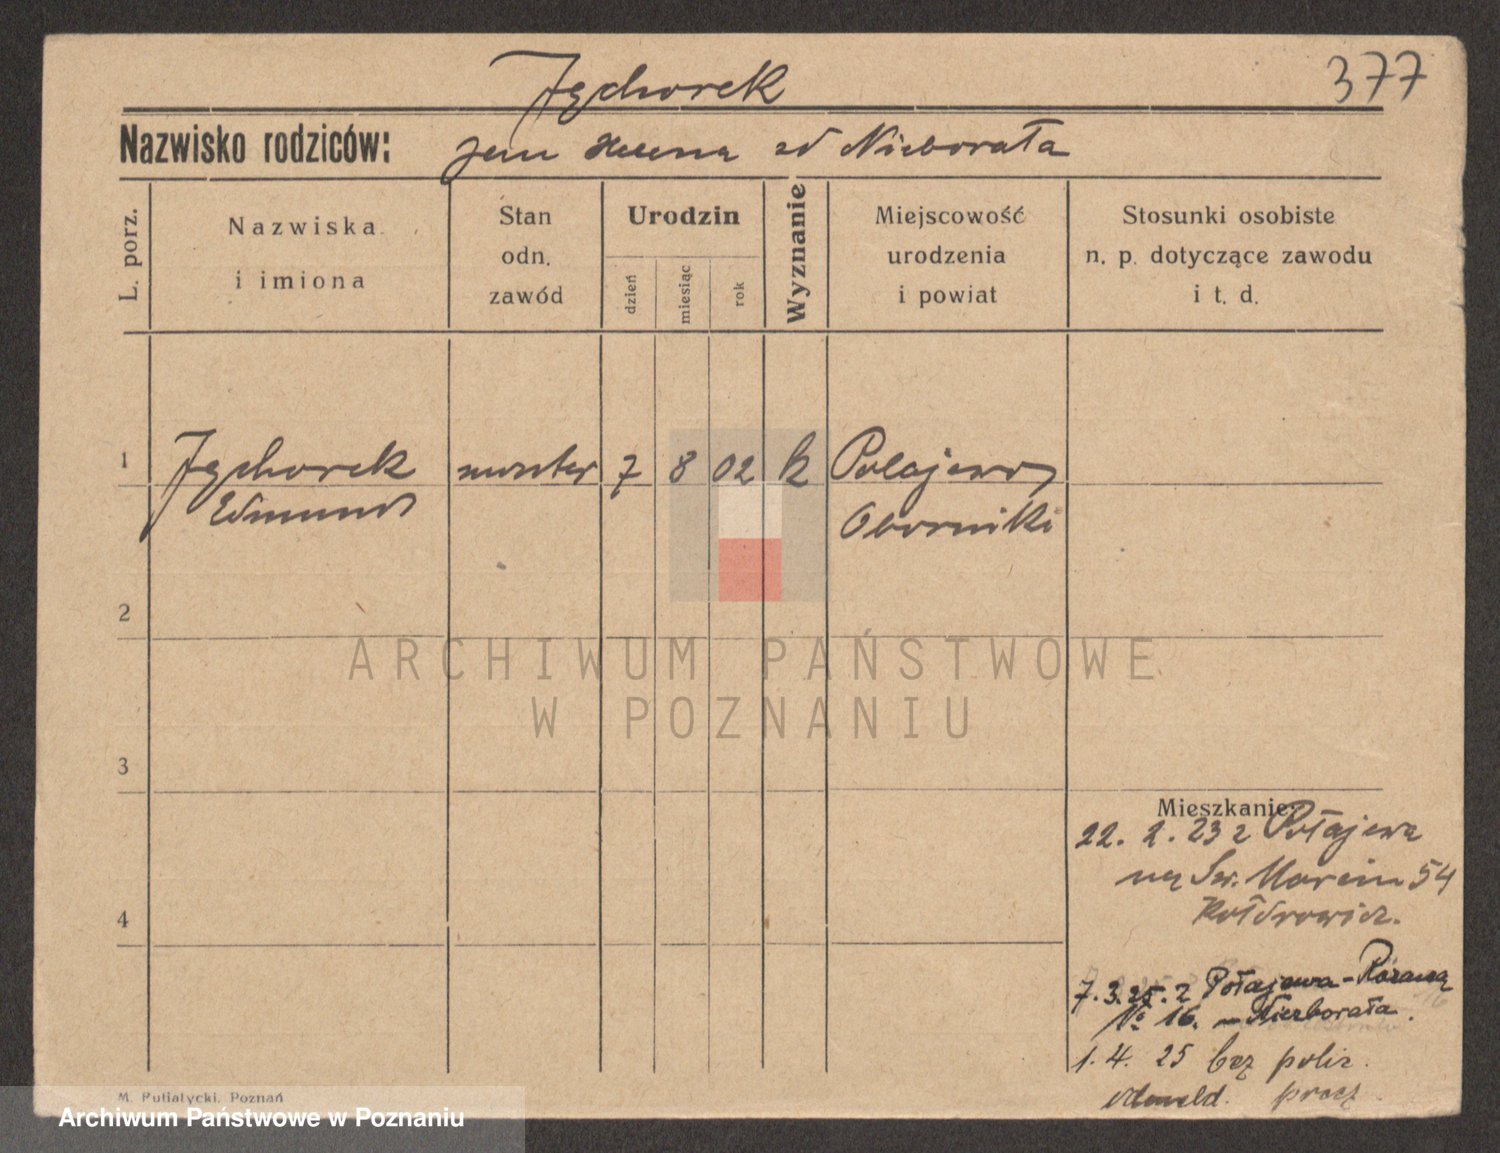 Jęchorek
377
Nazwisko rodziców:
Helena zd Nieborała
L. porz.
Nazwiska
i imiona
Stan
odn.
zawód
Urodzin
dzień
miesiąc
rok
Wyznanie
Miejscowość
urodzenia
i powiat
Stosunki osobiste
n. p. dotyczące zawodu
i t. d.
1
Jęchorek
Edmund
7
8
02
k
Połajewo
Oborniki
2
3
4
ARCHIWUM PAŃSTWOWE
W POZNANIU
Mieszkanie:
22. 2. 23 z Połajewa
na Św. Marcin 54
7. 3. 25. z Połajewa - Różaną
No 16. - Nieborała.
1. 4. 25 bez policz.
M. Putiatycki, Poznań
Archiwum Państwowe w Poznaniu